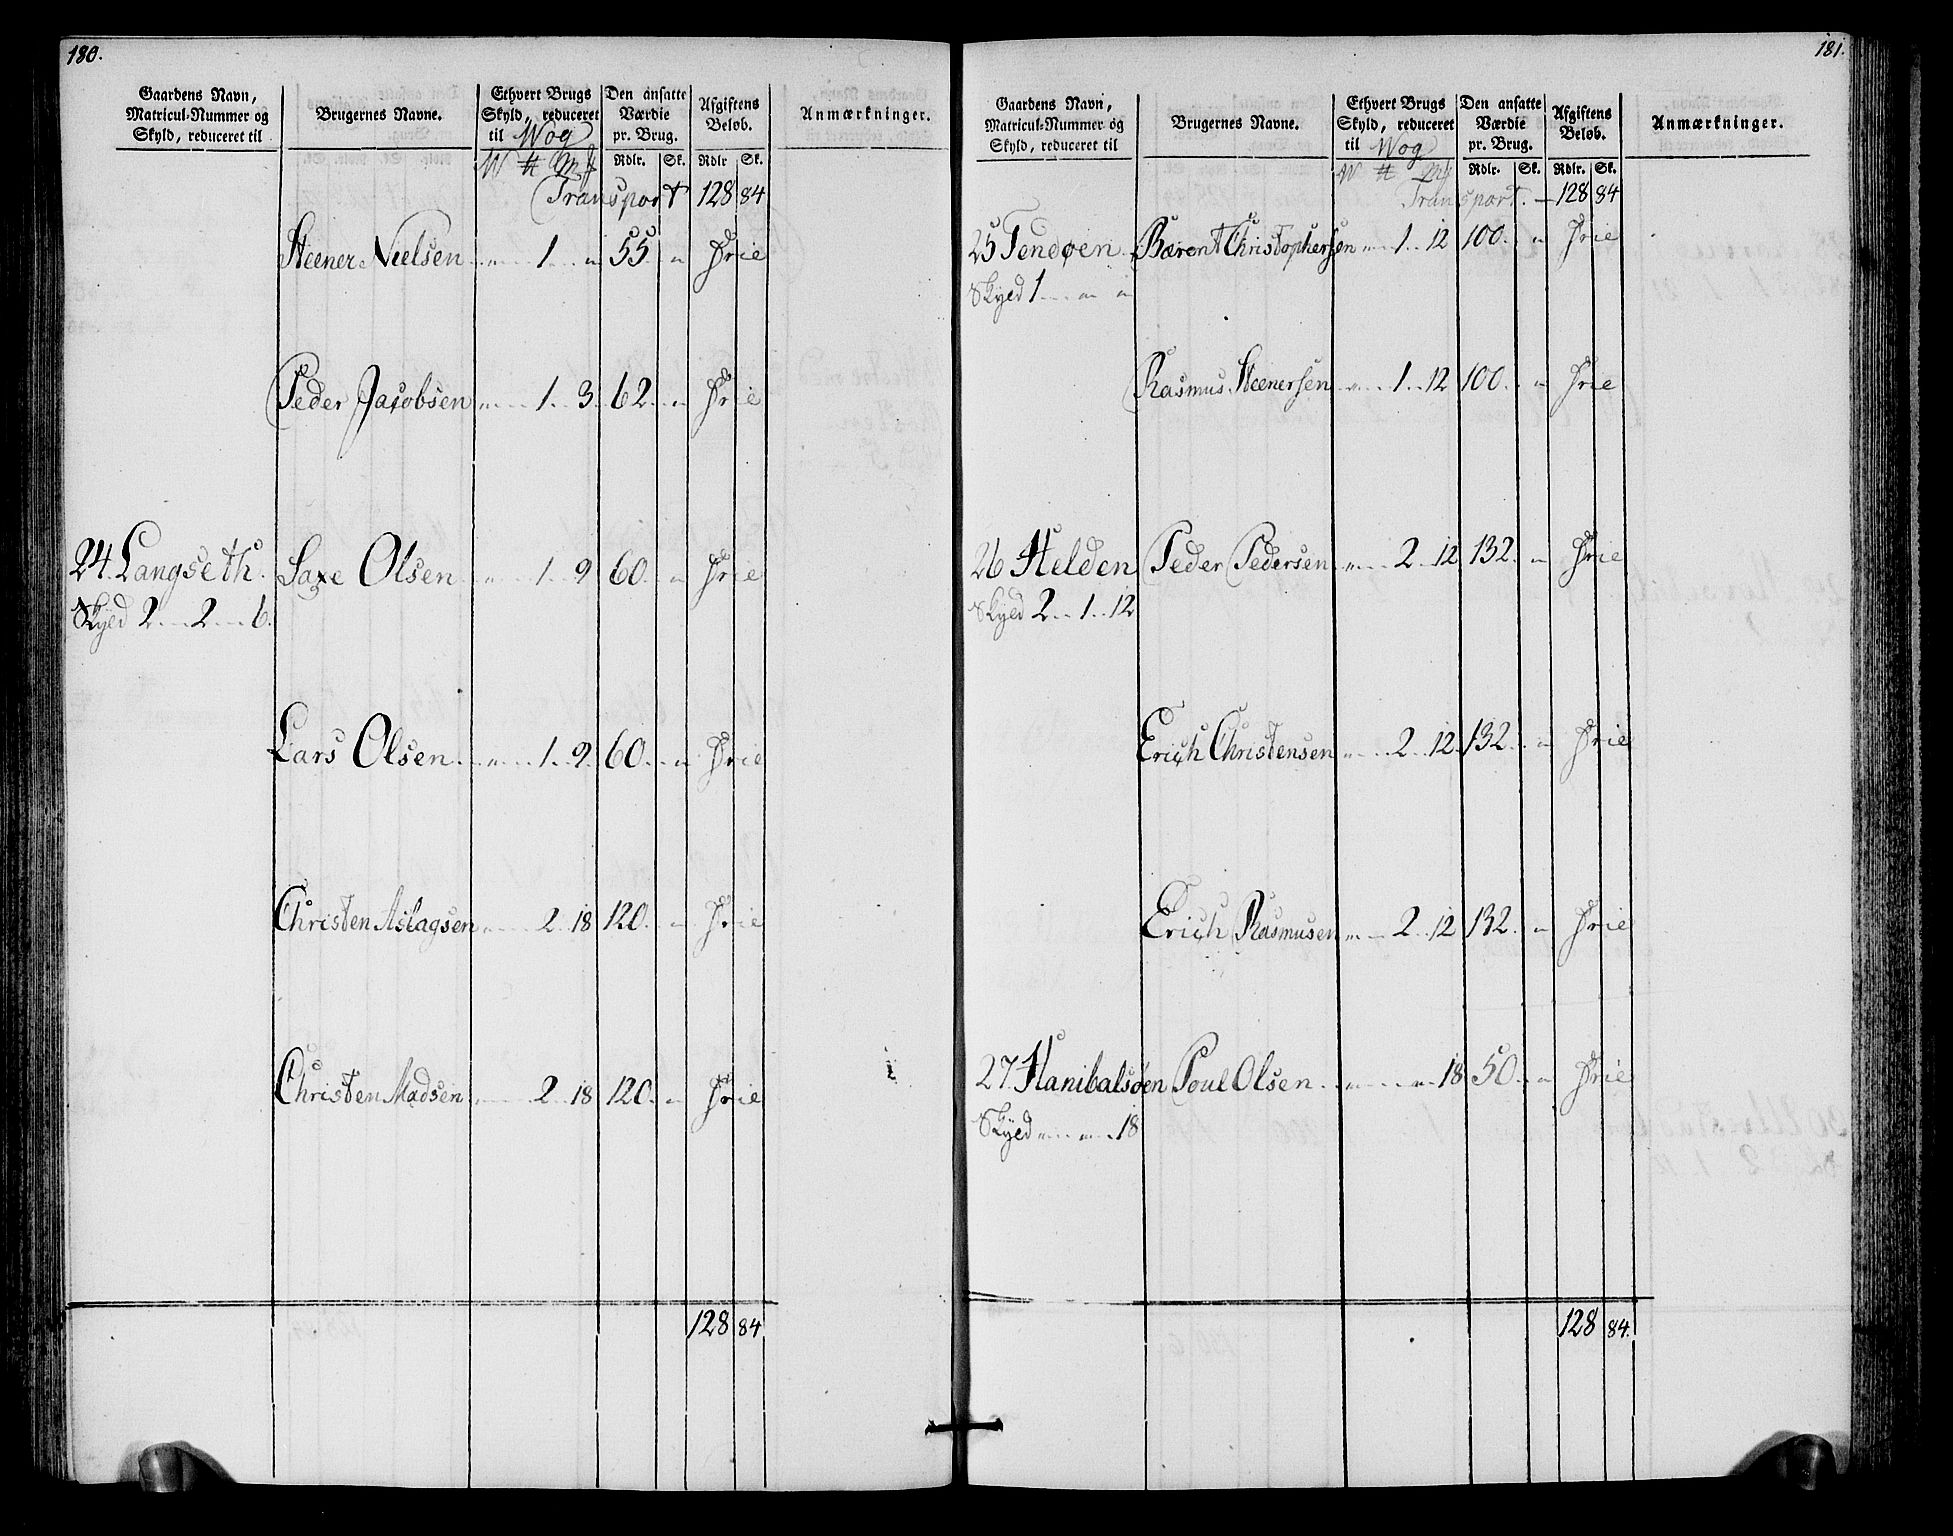 180.
Gaardens Navn, Matricul-Nummer og Skyld, reduceret til
Brugernes Navne.
Ethvert Brugs Skyld, reduceret til Wog
Den ansatte Værdie pr. Brug.
Afgiftens Beløb.
Anmærkninger.
Rdlr. Sk. Rdlr Sk.
Transport 128 84
Steener Nielsen 1 55 Frie
Peder Jacobsen 1 3 62 Frie
24. Langseth Saxe Olsen 1 9 60 Frie
Skyld 2 2 6.
Lars Olsen 1 9 60 Frie
Christen Aslagsen 2 18 120 Frie
Christen Madsen 2 18 120 Frie
128 84
181.
Gaardens Navn, Matricul-Nummer og Skyld, reduceret til
Brugernes Navne.
Ethvert Brugs Skyld, reduceret til Wog
Den ansatte Værdie pr. Brug.
Afgiftens Beløb.
Anmærkninger.
Rdlr. Sk. Rdlr. Sk.
Transport. 128 84
25 Tendøen Bærent Christophersen 1 12 100 Frie
Skyld 1
Rasmus Steenersen 1 12 100 Frie
26 Helden Peder Pedersen 2 12 132 Frie
Skyld 2 1 12
Erich Christensen 2 12 132 Frie
Erich Rasmusen 2 12 132 Frie
27 Hanibalsøen Poul Olsen 18 50 Frie
Skyld 18
128 84.